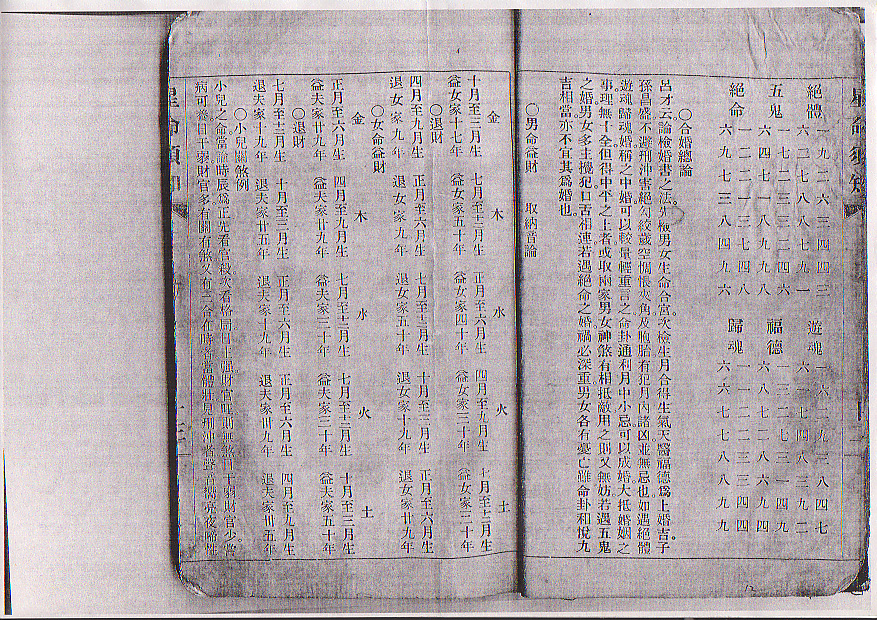 絕體 一九 二六 三四 四三 遊魂 一六 二九 三八 四七
六二 七八 八七 九一 六一 七四 八三 九二
五鬼 一七 二三 三二 四六 福德 一三 二七 三一 四九
六四 七一 八九 九八 六八 七二 八六 九四
絕命 一二 二一 三七 四八 歸魂 一一 二二 三三 四四
六九 七三 八四 九六 六六 七七 八八 九九
○合婚總論
呂才云論檢婚書之法先極男女生命合宮次檢生月合得生氣天醫福德爲上婚吉子
孫昌盛不避刑冲害絕勾絞歲空惆悵夾角及胞胎有犯月內諸凶並無忌也如遇絕體
遊魂歸魂婚稱之中婚可以較量輕重言之命卦通利月中小忌可以成婚大抵婚姻之
事理無十全但得中平之上者或取兩家男女神煞有相抵敵用之則又無妨若遇五鬼
之婚男女多主擾犯口舌相連若遇絕命之婚禍必深重男女各有憂亡雖命卦和悅九
吉相當亦不宜其爲婚也
○男命益財 取納音論
金 木 水 火 土
十月至三月生 七月至十二月生 正月至六月生 四月至九月生 七月至十二月生
益女家十七年 益女家五十年 益女家四十年 益女家二十年 益女家三十年
○退財
四月至九月生 正月至六月生 七月至十二月生 十月至三月生 正月至六月生
退女家九年 退女家九年 退女家五十年 退女家十九年 退女家廿九年
○女命益財
金 木 水 火 土
正月至六月生 四月至九月生 七月至十二月生 七月至十二月生 十月至三月生
益夫家廿九年 益夫家廿九年 益夫家三十年 益夫家三十年 益夫家五十年
○退財
七月至十二月生 十月至三月生 正月至六月生 正月至六月生 四月至九月生
退夫家十九年 退夫家廿五年 退夫家十九年 退夫家廿九年 退夫家廿五年
○小兒關煞例
小兒之命當論時辰爲正先看官殺次看格局日主強財官旺則無煞日干弱財官少
病可養日干弱財官多有關有煞又有二合在時
星命須知